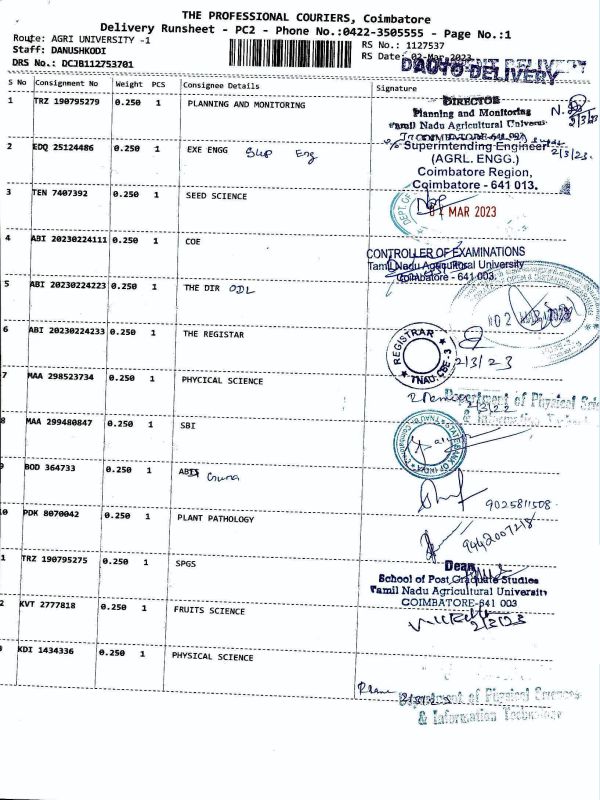 THE PROFESSIONAL COURIERS, Coimbatore
Delivery Runsheet - PC2 - Phone No.:0422-3505555 - Page No.:1
Route: AGRI UNIVERSITY -1
RS No.: 1127537
Staff: DANUSHKODI
RS Date: 02-Mar-2023
DRS No.: DCJB112753701
DAUTO DELIVERY
S No Consignment No Weight PCS Consignee Details Signature
1 TRZ 190795279 0.250 1 PLANNING AND MONITORING
DIRECTOR
Planning and Monitoring
Tamil Nadu Agricultural Universi
2/3/23
2 EDQ 25124486 0.250 1 EXE ENGG Sup Eng
Superintending Engineer
(AGRL. ENGG.)
Coimbatore Region,
Coimbatore - 641 013.
2/3/23.
3 TEN 7407392 0.250 1 SEED SCIENCE
DEPT. OF
MAR 2023
4 ABI 20230224111 0.250 1 COE
CONTROLLER OF EXAMINATIONS
Tamil Nadu Agricultural University
Coimbatore - 641 003.
5 ABI 20230224223 0.250 1 THE DIR ODL
02 MAR 2023
6 ABI 20230224233 0.250 1 THE REGISTAR
REGISTRAR
TNAU, CBE - 3
2/3/23
7 MAA 298523734 0.250 1 PHYCICAL SCIENCE
Department of Physical Scie
& Information
8 MAA 299480847 0.250 1 SBI
STATE BANK OF INDIA
9 BOD 364733 0.250 1 ABDI Guna
9025811508
10 PDK 8070042 0.250 1 PLANT PATHOLOGY
9442007218
1 TRZ 190795275 0.250 1 SPGS
Dean
School of Post Graduate Studies
Tamil Nadu Agricultural University
COIMBATORE-641 003
2 KVT 2777818 0.250 1 FRUITS SCIENCE
2/3/23
KDI 1434336 0.250 1 PHYSICAL SCIENCE
Department of Physical Sciences
& Information Technology